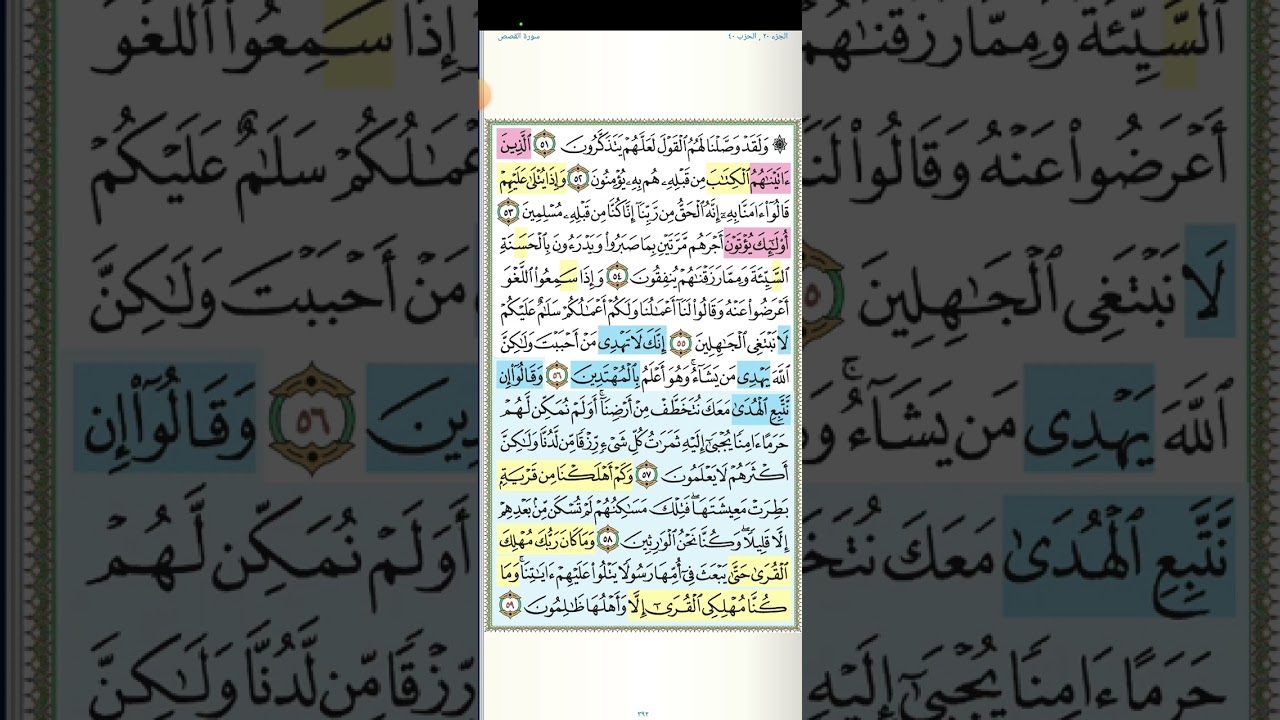 الجزء ٢٠ , الحزب ٤٠
سورة القصص
۞ وَلَقَدْ وَصَّلْنَا لَهُمُ ٱلْقَوْلَ لَعَلَّهُمْ يَتَذَكَّرُونَ ٥١ ٱلَّذِينَ
ءَاتَيْنَٰهُمُ ٱلْكِتَٰبَ مِن قَبْلِهِۦ هُم بِهِۦ يُؤْمِنُونَ ٥٢ وَإِذَا يُتْلَىٰ عَلَيْهِمْ
قَالُوٓا۟ ءَامَنَّا بِهِۦٓ إِنَّهُ ٱلْحَقُّ مِن رَّبِّنَآ إِنَّا كُنَّا مِن قَبْلِهِۦ مُسْلِمِينَ ٥٣
أُو۟لَٰٓئِكَ يُؤْتَوْنَ أَجْرَهُم مَّرَّتَيْنِ بِمَا صَبَرُوا۟ وَيَدْرَءُونَ بِٱلْحَسَنَةِ
ٱلسَّيِّئَةَ وَمِمَّا رَزَقْنَٰهُمْ يُنفِقُونَ ٥٤ وَإِذَا سَمِعُوا۟ ٱللَّغْوَ
أَعْرَضُوا۟ عَنْهُ وَقَالُوا۟ لَنَآ أَعْمَٰلُنَا وَلَكُمْ أَعْمَٰلُكُمْ سَلَٰمٌ عَلَيْكُمْ
لَا نَبْتَغِى ٱلْجَٰهِلِينَ ٥٥ إِنَّكَ لَا تَهْدِى مَنْ أَحْبَبْتَ وَلَٰكِنَّ
ٱللَّهَ يَهْدِى مَن يَشَآءُ ۚ وَهُوَ أَعْلَمُ بِٱلْمُهْتَدِينَ ٥٦ وَقَالُوٓا۟ إِن
نَّتَّبِعِ ٱلْهُدَىٰ مَعَكَ نُتَخَطَّفْ مِنْ أَرْضِنَآ ۚ أَوَلَمْ نُمَكِّن لَّهُمْ
حَرَمًا ءَامِنًا يُجْبَىٰٓ إِلَيْهِ ثَمَرَٰتُ كُلِّ شَىْءٍ رِّزْقًا مِّن لَّدُنَّا وَلَٰكِنَّ
أَكْثَرَهُمْ لَا يَعْلَمُونَ ٥٧ وَكَمْ أَهْلَكْنَا مِن قَرْيَةٍۭ
بَطِرَتْ مَعِيشَتَهَا ۖ فَتِلْكَ مَسَٰكِنُهُمْ لَمْ تُسْكَن مِّنۢ بَعْدِهِمْ
إِلَّا قَلِيلًا ۖ وَكُنَّا نَحْنُ ٱلْوَٰرِثِينَ ٥٨ وَمَا كَانَ رَبُّكَ مُهْلِكَ
ٱلْقُرَىٰ حَتَّىٰ يَبْعَثَ فِىٓ أُمِّهَا رَسُولًا يَتْلُوا۟ عَلَيْهِمْ ءَايَٰتِنَا ۚ وَمَا
كُنَّا مُهْلِكِى ٱلْقُرَىٰٓ إِلَّا وَأَهْلُهَا ظَٰلِمُونَ ٥٩
٣٩٢